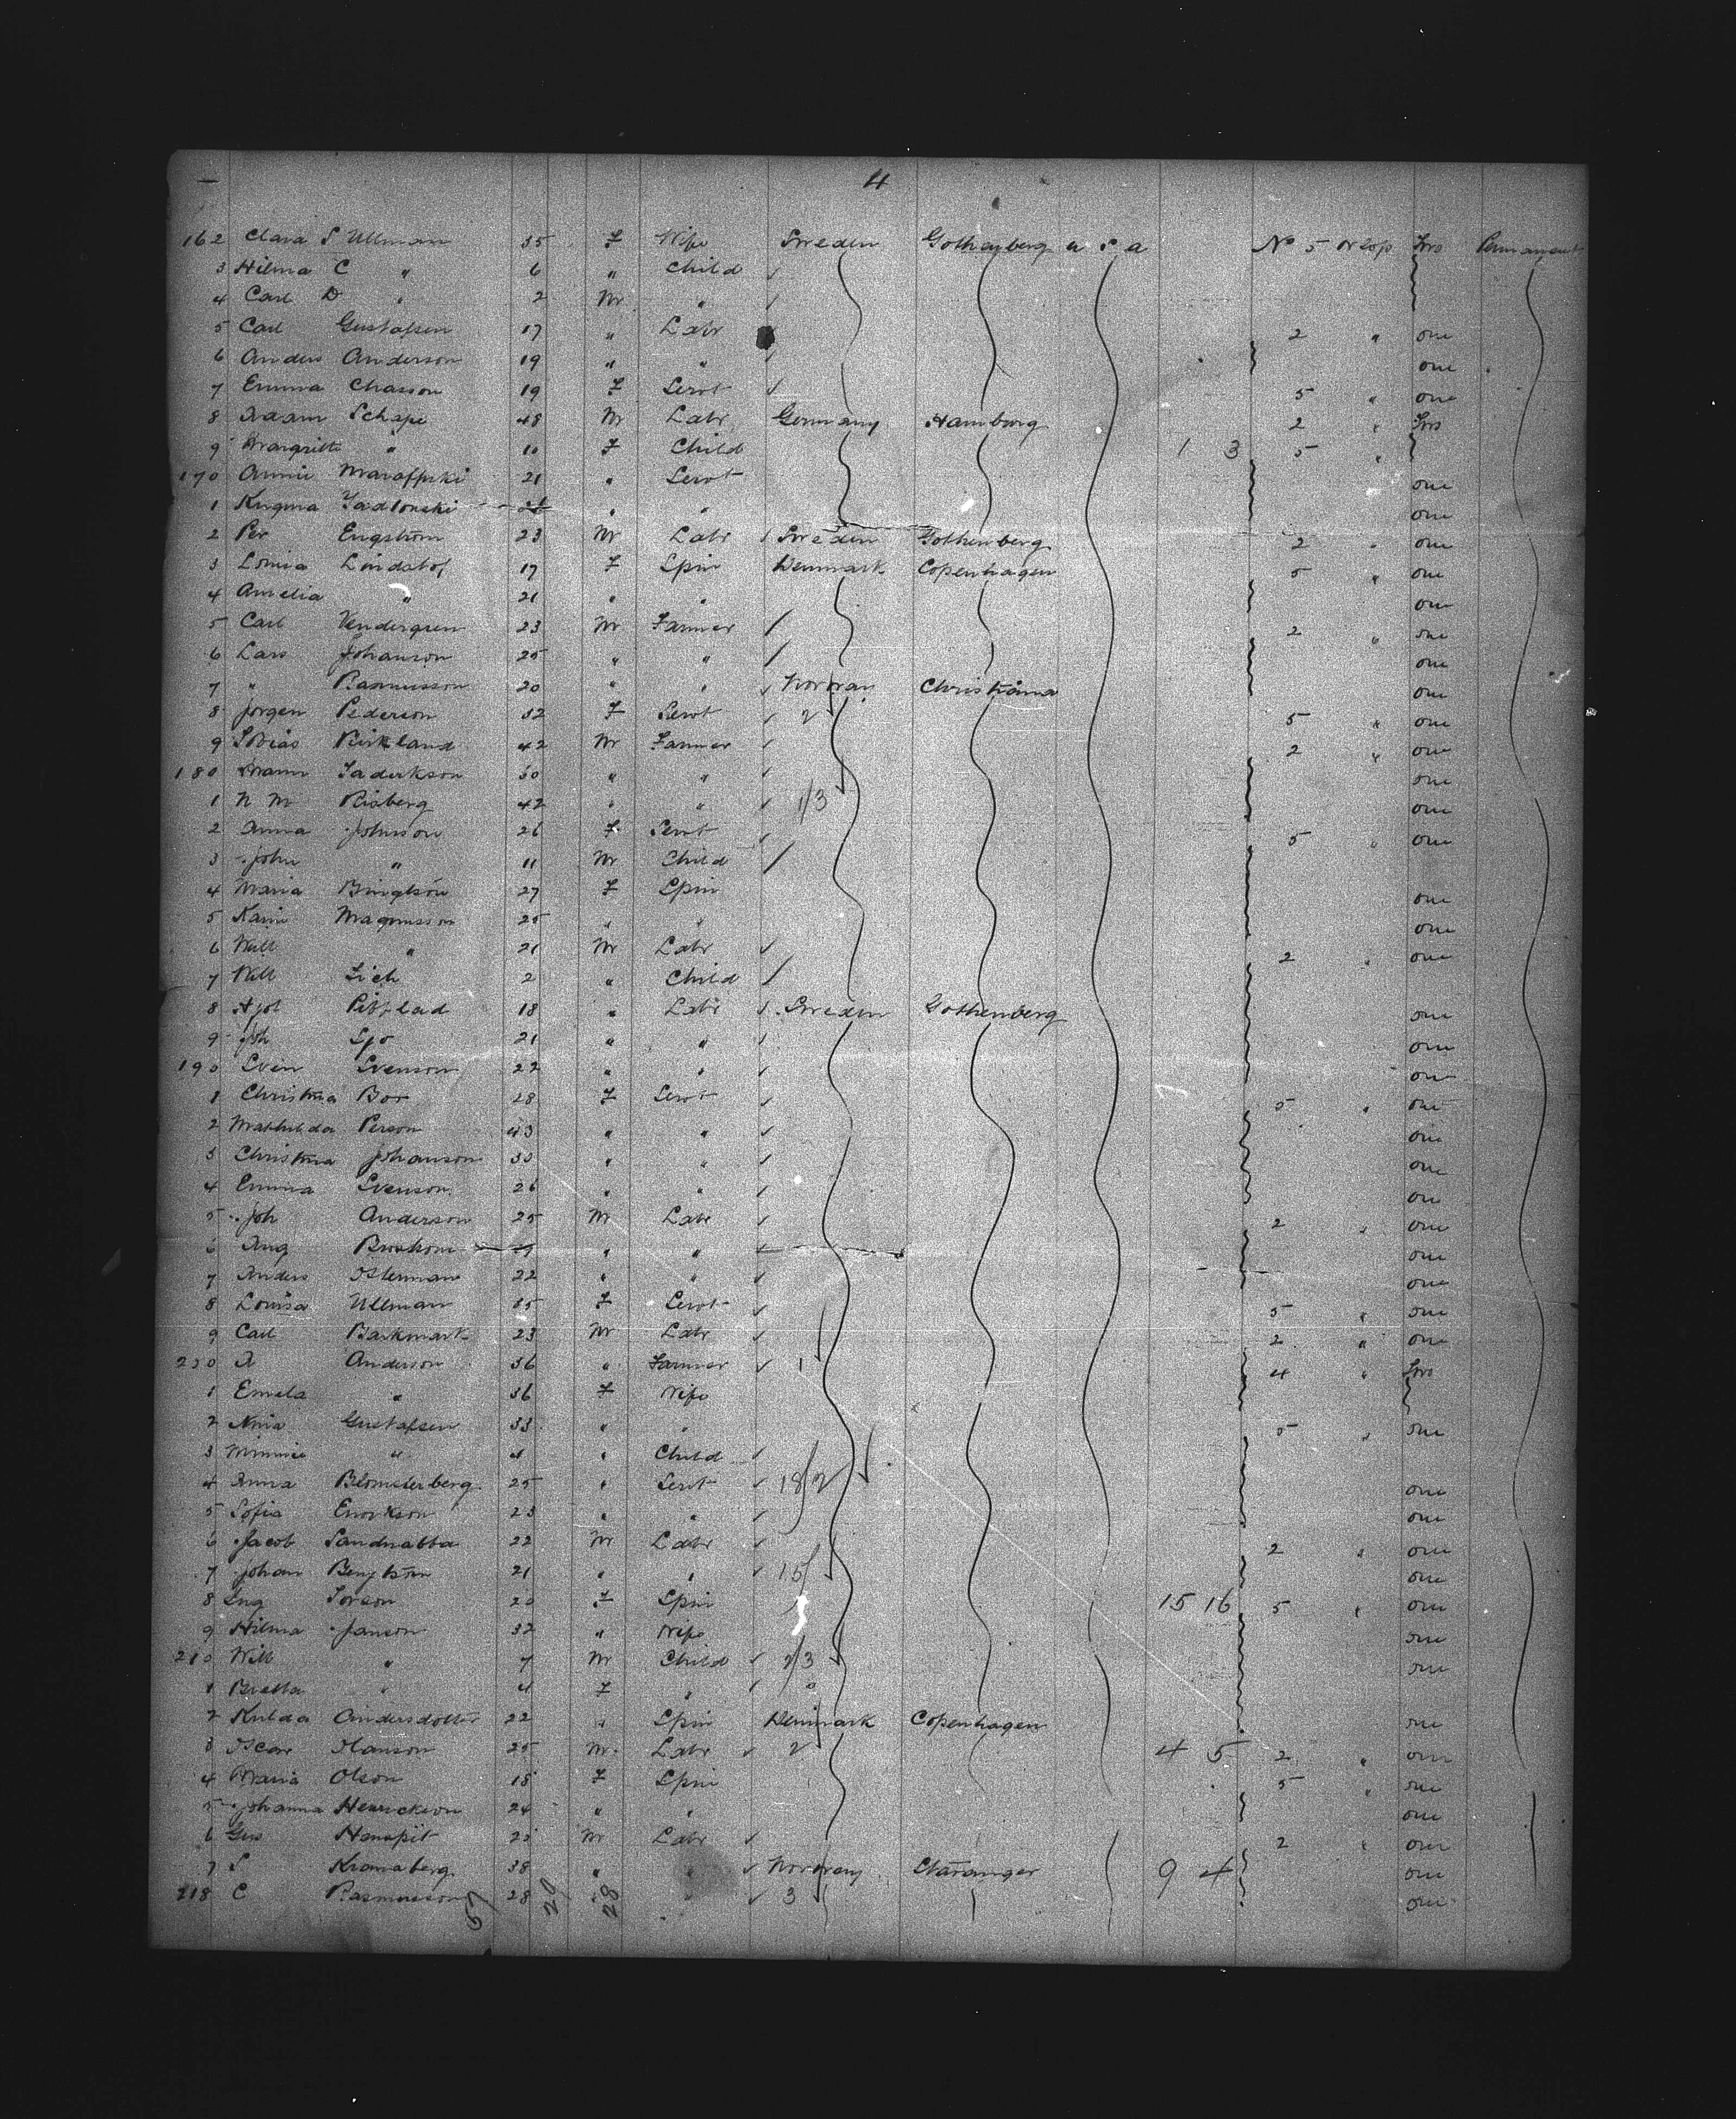 4
162 Clara S Ullman 35 F Wife Sweden Gothenberg U.S.A No 5 Two Permanent
3 Hilma C " 6 " Child
4 Carl D " 2 M "
5 Carl Gustafsen 17 " Labr 2 " one
6 Anders Anderson 19 " " one
7 Emma Chasson 19 F Servt 5 " one
8 Adam Schape 48 M Labr Germany Hamburg 2 " Two
9 Margritte " 10 F Child 1 3 5 "
170 Annie 21 " Servt one
1 " " one
2 Per Engstrom 23 M Labr Sweden Gothenberg 2 " one
3 Lovisa 17 F Spin Denmark Copenhagen 5 " one
4 Amelia " 21 " " one
5 Carl Vendergren 23 M Farmer 2 " one
6 Lars Johanson 25 " " one
7 " Rasmusson 20 " " Norway Christiania one
8 Jorgen Pederson 32 F Servt 2 5 " one
9 Tobias Kirkland 42 M Farmer 2 " one
180 30 " " one
1 N M Risberg 42 " " 1/3 one
2 Anna Johnson 26 F Servt 5 " one
3 John " 11 M Child
4 Maria 27 F Spin one
5 Karin Magnusson 25 " " one
6 Will " 21 M Labr 2 " one
7 Will Lich 2 " Child
8 18 " Labr Sweden Gothenberg one
9 Joh 21 " " one
190 Sven Svenson 22 " " one
1 Christina Bor 28 F Servt 5 " one
2 Mathilda Person 43 " " one
3 Christina Johanson 30 " " one
4 Emma Svenson 26 " " one
5 Joh Anderson 25 M Labr 2 " one
6 Aug " " one
7 Anders Osterman 22 " " one
8 Louisa Ullman 35 F Servt 5 " one
9 Carl Barkmark 23 M Labr 2 " one
200 A Anderson 36 " Farmer 1 4 " Two
1 Emela " 36 F Wife
2 Gustafsen 33 " " 5 " one
3 Minnie " 4 " Child
4 Anna Blomsterberg 25 " Servt 18/2 one
5 Sofia Errickson 23 " " one
6 Jacob Sandnabba 22 M Labr 2 " one
7 Johan Bengtson 21 " " 15/ one
8 Ing 20 F Spin 15 16 5 " one
9 Hilma Janson 32 " Wife one
210 Will " 7 M Child 2/3 one
1 Bretta " 4 F "
2 Andersdotter 22 " Spin Denmark Copenhagen one
3 Oscar Hanson 25 M Labr 2 4 5 2 " one
4 Maria Olson 18 F Spin 5 " one
5 Johanna Henrickson 24 " " one
6 Gus M Labr 2 " one
7 S Kronaberg 38 " " Norway Stavanger 9 4 one
218 C Rasmusson 28 " " 3 one
28